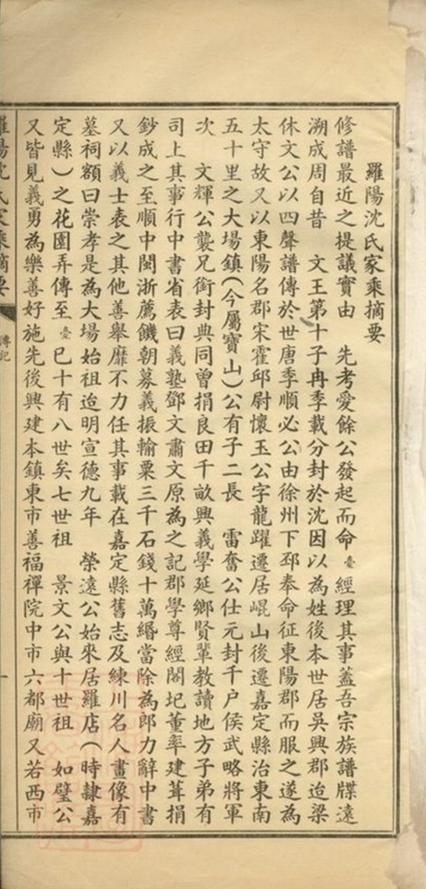 羅陽沈氏家乘摘要
修譜最近之提議實由　先考愛餘公發起而命臺經理其事蓋吾宗族譜牒遠
溯成周自昔　文王第十子冉季載分封於沈因以為姓後本世居吳興郡迨梁
休文公以四聲譜傳於世唐季順必公由徐州下邳奉命征東陽郡而服之遂為
太守故又以東陽名郡宋霍邱尉懷玉公字龍躍遷居崐山後遷嘉定縣治東南
五十里之大場鎮(今屬寶山)公有子二長　雷奮公仕元封千户侯武略將軍
次　文輝公襲兄銜封典同曾捐良田千畝興義學延鄉賢輩教讀地方子弟有
司上其事行中書省表曰義塾鄧文肅文原為之記郡學尊經閣圮董率建葺捐
鈔成之至順中閩浙薦饑朝募義振輸粟三千石錢十萬緡當除為郎力辭中書
又以義士表之其他善舉靡不力任其事載在嘉定縣舊志及練川名人畫像有
墓祠額曰崇孝是為大場始祖迨明宣德九年　榮遠公始來居羅店(時隸嘉
定縣)之花園弄傳至臺巳十有八世矣七世祖　景文公與十世祖　如璧公
又皆見義勇為樂善好施先後興建本鎮東市善福禪院中市六都廟又若西市
羅陽沈氏家乘摘要
傳記
一